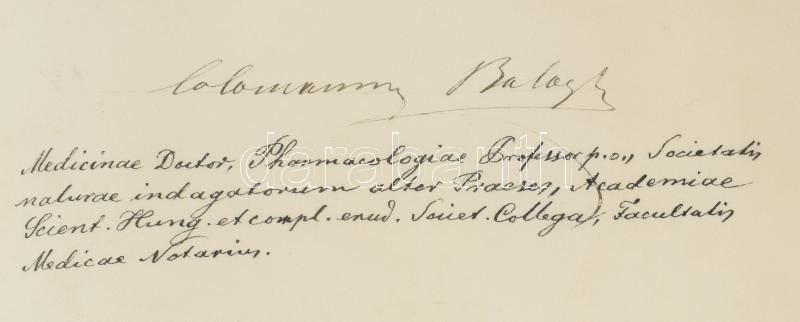 Colomannus Balogh
Medicinae Doctor, Pharmacologiae Professor p.o., Societatis
naturae indagatorum alter Praeses, Academiae
Scient. Hung. et compl. erud. Societ. Collega, Facultatis
Medicae Notarius.
darabanth